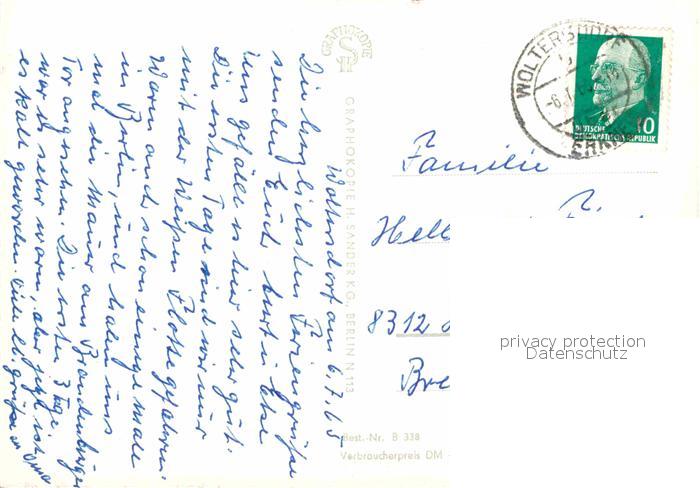 Woltersdorf am 6.7.65
Die herzlichsten Feriengrüße
senden Euch Kurt u. Else
Uns gefällt es hier sehr gut.
Die ersten Tage sind wir nur
mit der Weißen Flotte gefahren.
Waren auch schon einige male
in Berlin, und haben uns
mal die Mauer am Brandenburger
Tor angesehen. Die ersten 3 Tage
war es sehr warm, aber jetzt ist
es kalt geworden. Viele l. Grüße
GRAPHOKOPIE
GRAPHOKOPIE H. SANDER KG. BERLIN N 113
WOLTERSDORF
DEUTSCHE
DEMOKRATISCHE REPUBLIK
10
Familie
Hell
8312
Bre
privacy protection
Datenschutz
Best.-Nr. B 338
Verbraucherpreis DM